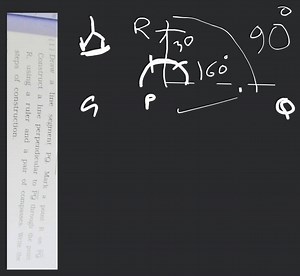 R
30
90°
160°
G
P
Q
(1) Draw a line segment PQ. Mark a point R on PQ.
Construct a line perpendicular to PQ through the point
R, using a ruler and a pair of compasses. Write the
steps of construction.